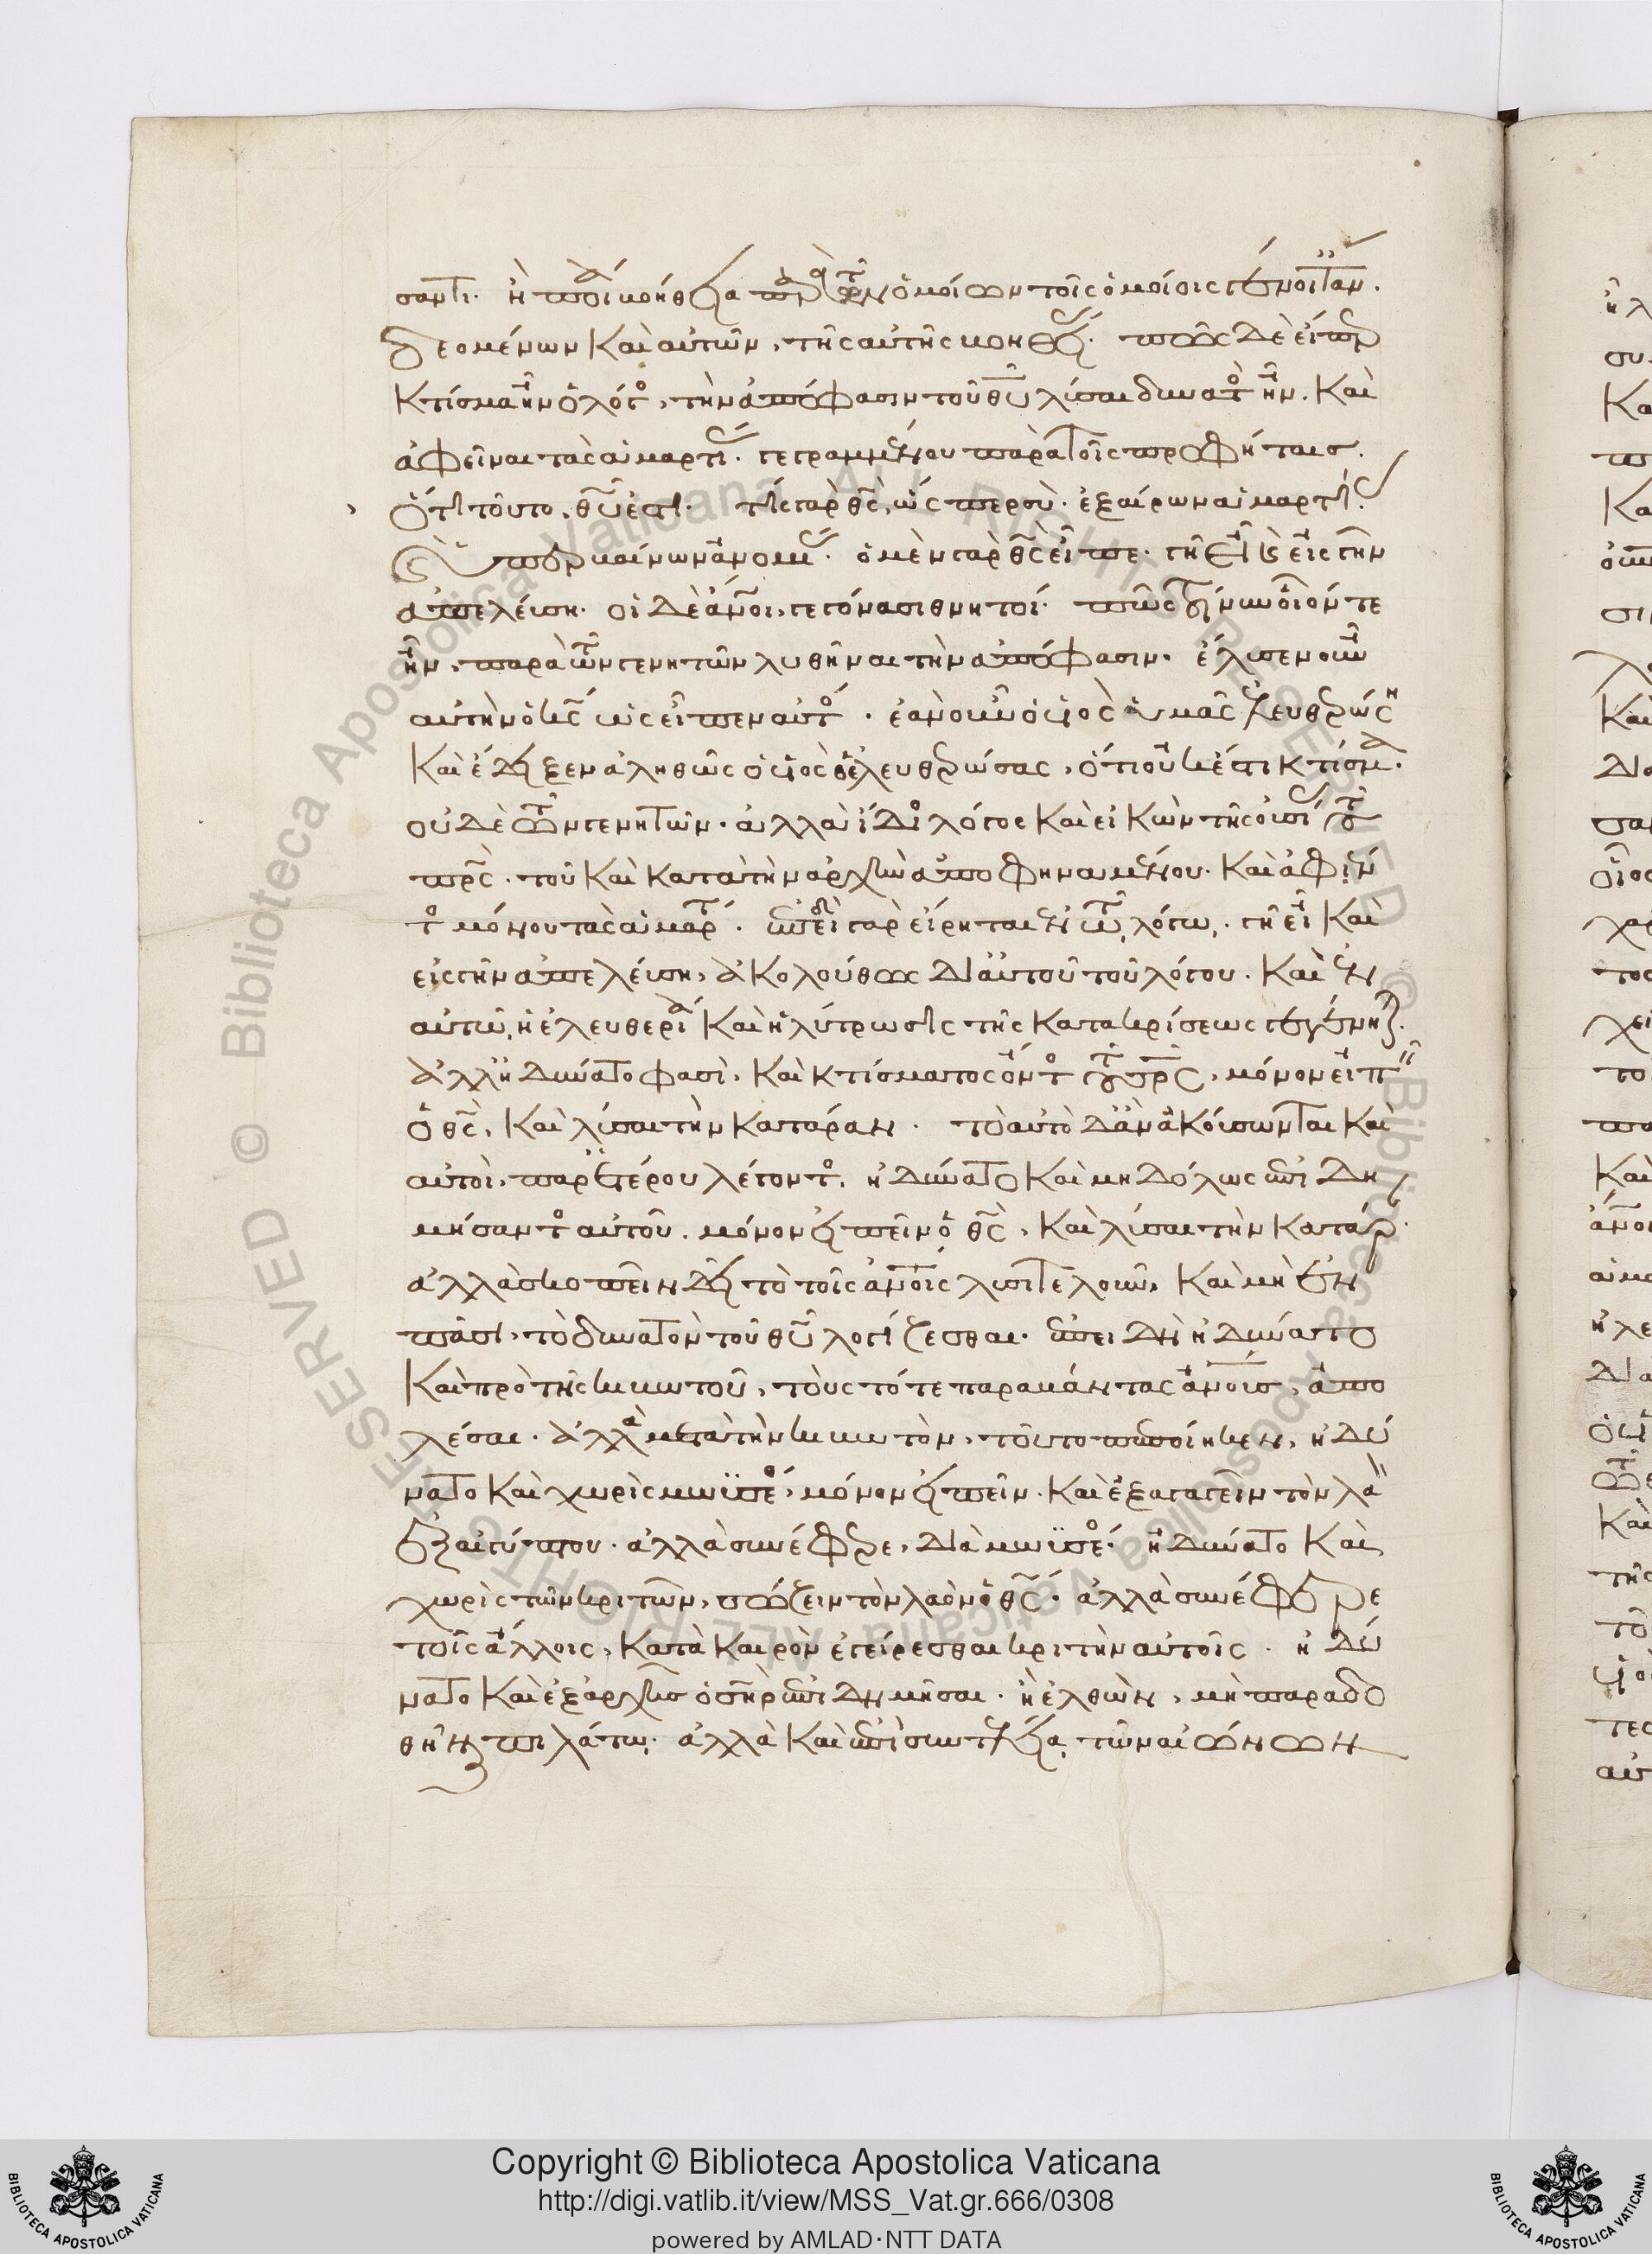 σαντι. ἢ ποία βοήθεια παρὰ τῶν ὁμοίων τοῖς ὁμοίοις γένοιτ' ἄν.
δεομένων καὶ αὐτῶν, τῆς αὐτῆς βοηθείας. πῶς δὲ εἴπερ
κτίσμα ἦν ὁ λόγος, τὴν ἀπόφασιν τοῦ θῦ λῦσαι δυνατὸς ἦν. καὶ
ἀφεῖναι τὰς ἁμαρτίας. γεγραμμένου παρὰ τοῖς προφήταις.
ὅτι τοῦτο, θῦ ἐστι. τίς γὰρ θς, ὥσπερ σὺ. ἐξαίρων ἁμαρτίας.
καὶ ὑπερβαίνων ἀνομίας. ὁ μὲν γὰρ θς εἶπε. γῆ εἶ καὶ εἰς γῆν
ἀπελεύση. οἱ δὲ ἄνοι, γεγόνασι θνητοί. πῶς τοίνυν οἷόν τε
ἦν, παρὰ τῶν γενητῶν λυθῆναι τὴν ἀπόφασιν. ἔλυσεν οὖν
αὐτὴν ὁ κς ὡς εἶπεν αὐτός. ἐὰν οὖν ὁ υἱὸς ὑμᾶς ἐλευθερώσῃ
καὶ ἔδειξεν ἀληθῶς ὁ υἱὸς ὁ ἐλευθερώσας, ὅτι οὔκ ἐστι κτίσμα.
οὐδὲ τῶν γενητῶν. ἀλλὰ ἴδιος λόγος καὶ εἰκὼν τῆς οὐσίας τοῦ
πρς. τοῦ καὶ κατὰ τὴν ἀρχὴν ἀποφηναμένου. καὶ ἀφιέν
τος μόνου τὰς ἁμαρτίας. ἐπειδὴ γὰρ εἴρηται ἐν τῷ λόγω. γῆ εἶ καὶ
εἰς γῆν ἀπελεύση, ἀκολούθως δι' αὐτοῦ τοῦ λόγου. καὶ ἐν
αὐτῷ, ἡ ἐλευθερία καὶ ἡ λύτρωσις τῆς κατακρίσεως γέγονεν.
ἀλλ' ἠδύνατο φασὶ, καὶ κτίσματος ὄντος τοῦ σρς, μόνον εἰπεῖν
ὁ θς, καὶ λῦσαι τὴν κατάραν. τὸ αὐτὸ δ' ἂν ἀκούσωνται καὶ
αὐτοὶ, παρ' ἑτέρου λέγοντος. ἠδύνατο καὶ μηδόλως ἐπιδη
μήσαντος αὐτοῦ. μόνον εἰπεῖν ὁ θς, καὶ λῦσαι τὴν κατάραν.
ἀλλὰ σκοπεῖν δεῖ τὸ τοῖς ἀνοις λυσιτελοῦν, καὶ μὴ ἐν
πᾶσι, τὸ δυνατὸν τοῦ θῦ λογίζεσθαι. ἐπεὶ δὴ ἠδύνατο
καὶ πρὸ τῆς κιβωτοῦ, τοὺς τότε παραβάντας ἀνους, ἀπο
λέσαι. ἀλλὰ μετὰ τὴν κιβωτὸν, τοῦτο πεποίηκεν, ἠδύ
νατο καὶ χωρὶς μωϋσέως, μόνον εἰπεῖν. καὶ ἐξαγαγεῖν τὸν λαὸν
ἐξ αἰγύπτου. ἀλλὰ συνέφερε, διὰ μωϋσέως. ἠδύνατο καὶ
χωρὶς τῶν κριτῶν, σώζειν τὸν λαὸν ὁ θς. ἀλλὰ συνέφερε
τοῖς ἄλλοις, κατὰ καιρὸν ἐγείρεσθαι κριτὴν αὐτοῖς. ἠδύ
νατο καὶ ἐξ ἀρχῆς ὁ σὴρ ἐπιδημῆσαι. ἢ ἐλθὼν, μὴ παραδο
θῆναι πιλάτω. ἀλλὰ καὶ ἐπὶ συντελεία τῶν αἰώνων
Copyright © Biblioteca Apostolica Vaticana
http://digi.vatlib.it/view/MSS_Vat.gr.666/0308
powered by AMLAD·NTT DATA